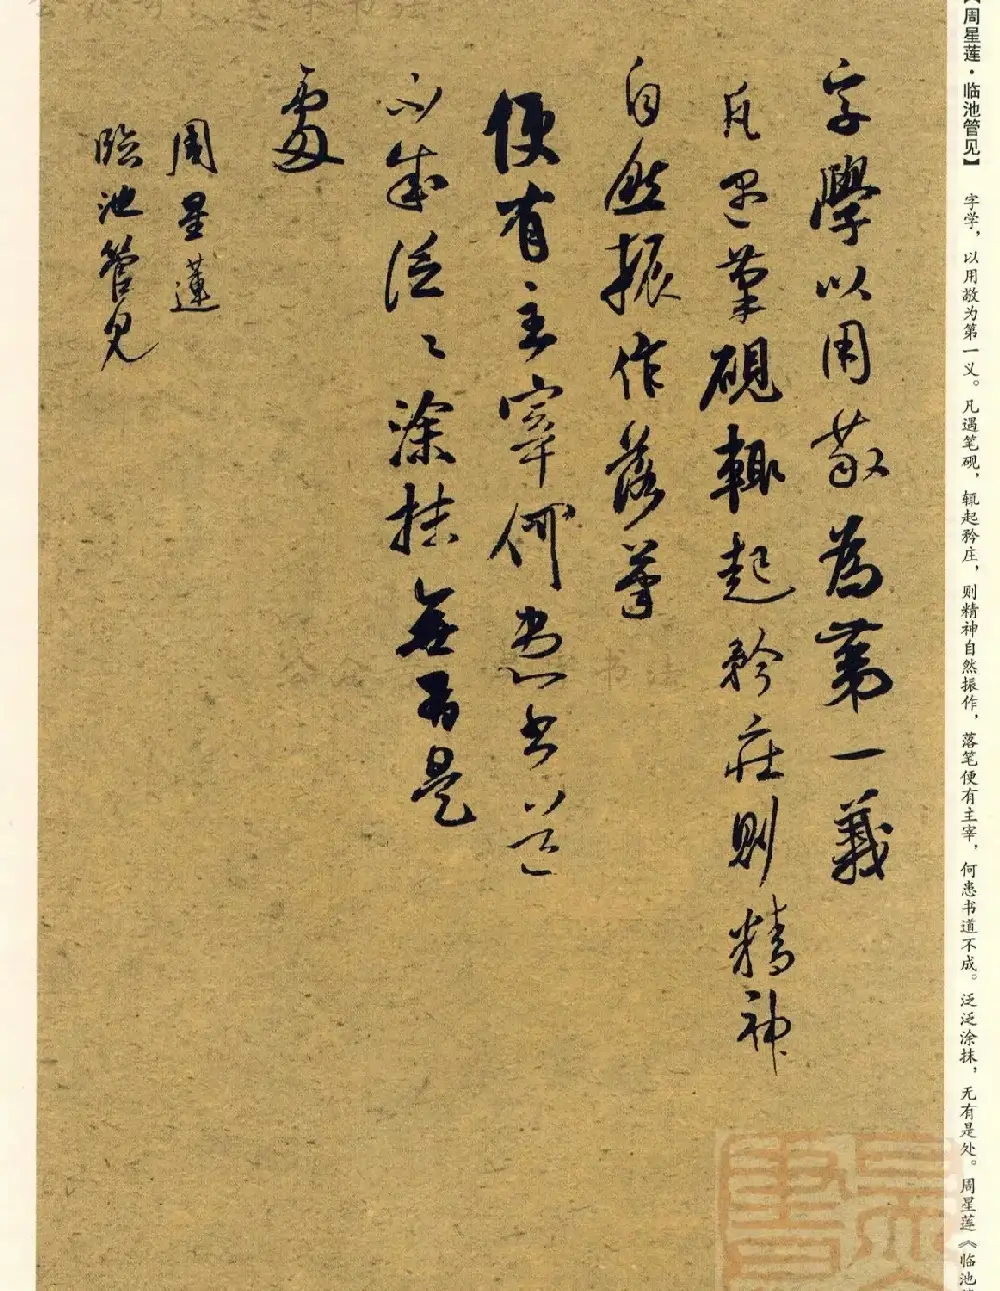 【周星莲·临池管见】 字学，以用敬为第一义。凡遇笔砚，辄起矜庄，则精神自然振作，落笔便有主宰，何患书道不成。泛泛涂抹，无有是处。周星莲《临池
字學以用敬為第一義
凡遇筆硯輒起矜莊則精神
自然振作落筆
便有主宰何患書道
不成泛泛涂抹無有是
處
周星蓮
臨池管見